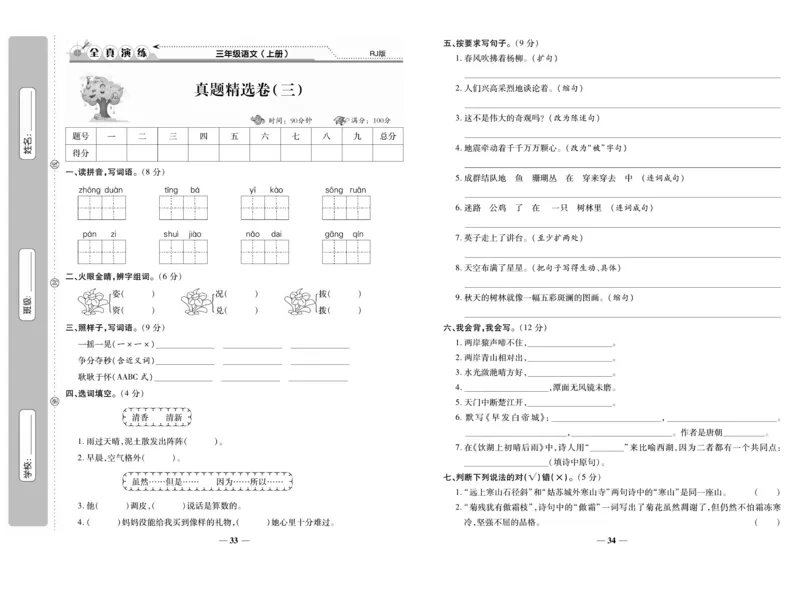 全真演练
三年级语文(上册)
RJ版
真题精选卷(三)
时间:90分钟 满分:100分
题号 一 二 三 四 五 六 七 八 九 总分
得分
姓名:
班级:
学校:
一、读拼音,写词语。(8分)
zhōng duàn tīng bá yī kào sōng ruǎn
pán zi shuì jiào nǎo dai gāng qín
二、火眼金睛,辨字组词。(6分)
姿( ) 况( ) 拔( )
资( ) 兑( ) 拨( )
三、照样子,写词语。(9分)
一摇一晃(一×一×)
争分夺秒(含近义词)
耿耿于怀(AABC式)
四、选词填空。(4分)
清香 清新
1.雨过天晴,泥土散发出阵阵( )。
2.早晨,空气格外( )。
虽然……但是…… 因为……所以……
3.他( )调皮,( )说话是算数的。
4.( )妈妈没能给我买到像样的礼物,( )她心里十分难过。
— 33 —
五、按要求写句子。(9分)
1.春风吹拂着杨柳。(扩句)
2.人们兴高采烈地谈论着。(缩句)
3.这不是伟大的奇观吗?(改为陈述句)
4.地震牵动着千千万万颗心。(改为“被”字句)
5.成群结队地 鱼 珊瑚丛 在 穿来穿去 中 (连词成句)
6.迷路 公鸡 了 在 一只 树林里 (连词成句)
7.英子走上了讲台。(至少扩两处)
8.天空布满了星星。(把句子写得生动、具体)
9.秋天的树林就像一幅五彩斑斓的图画。(缩句)
六、我会背,我会写。(12分)
1.两岸猿声啼不住,。
2.两岸青山相对出,。
3.水光潋滟晴方好,。
4.,潭面无风镜未磨。
5.天门中断楚江开,。
6.默写《早发白帝城》:,。
,。作者是唐朝。
7.在《饮湖上初晴后雨》中,诗人用“”来比喻西湖,因为二者都有一个共同点:
(填诗中原句)。
七、判断下列说法的对(√)错(×)。(5分)
1.“远上寒山石径斜”和“姑苏城外寒山寺”两句诗中的“寒山”是同一座山。 ( )
2.“菊残犹有傲霜枝”,诗句中的“傲霜”一词写出了菊花虽然凋谢了,但仍然不怕霜冻寒
冷,坚强不屈的品格。 ( )
— 34 —